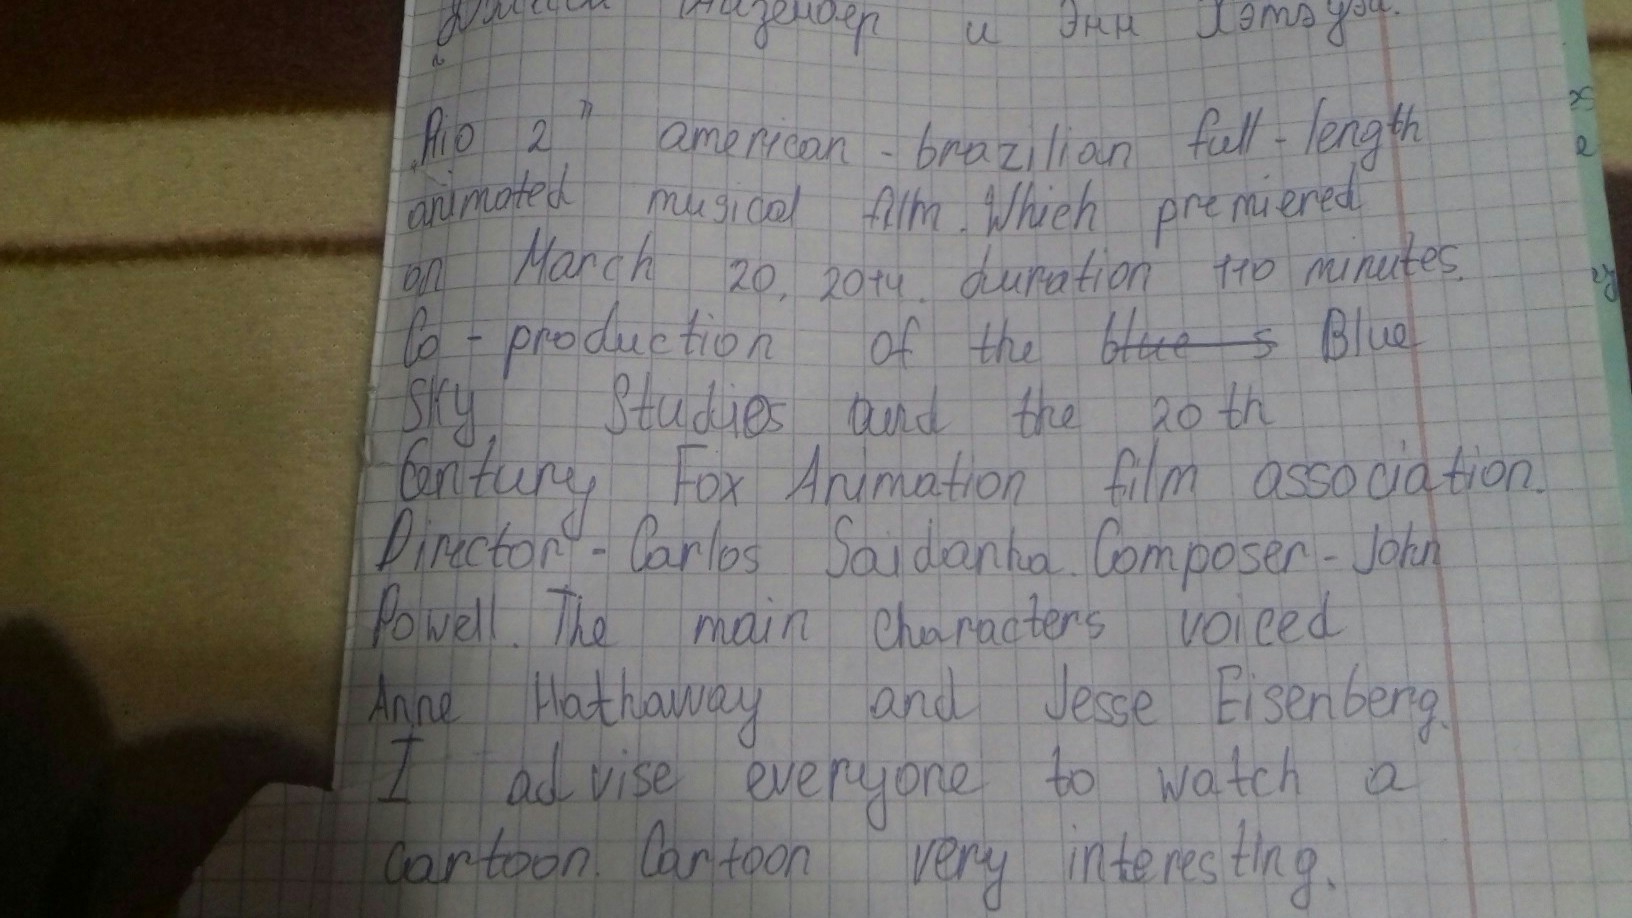 и Энн Хэтэуэй.
"Rio 2" american - brazilian full - length
animated musical film. Which premiered
on March 20, 2014. duration 110 minutes.
Co - production of the blue s Blue
Sky Studios and the 20 th
Century Fox Animation film association.
Director - Carlos Saldanha. Composer - John
Powell. The main characters voiced
Anne Hathaway and Jesse Eisenberg.
I advise everyone to watch a
cartoon. Cartoon very interesting.